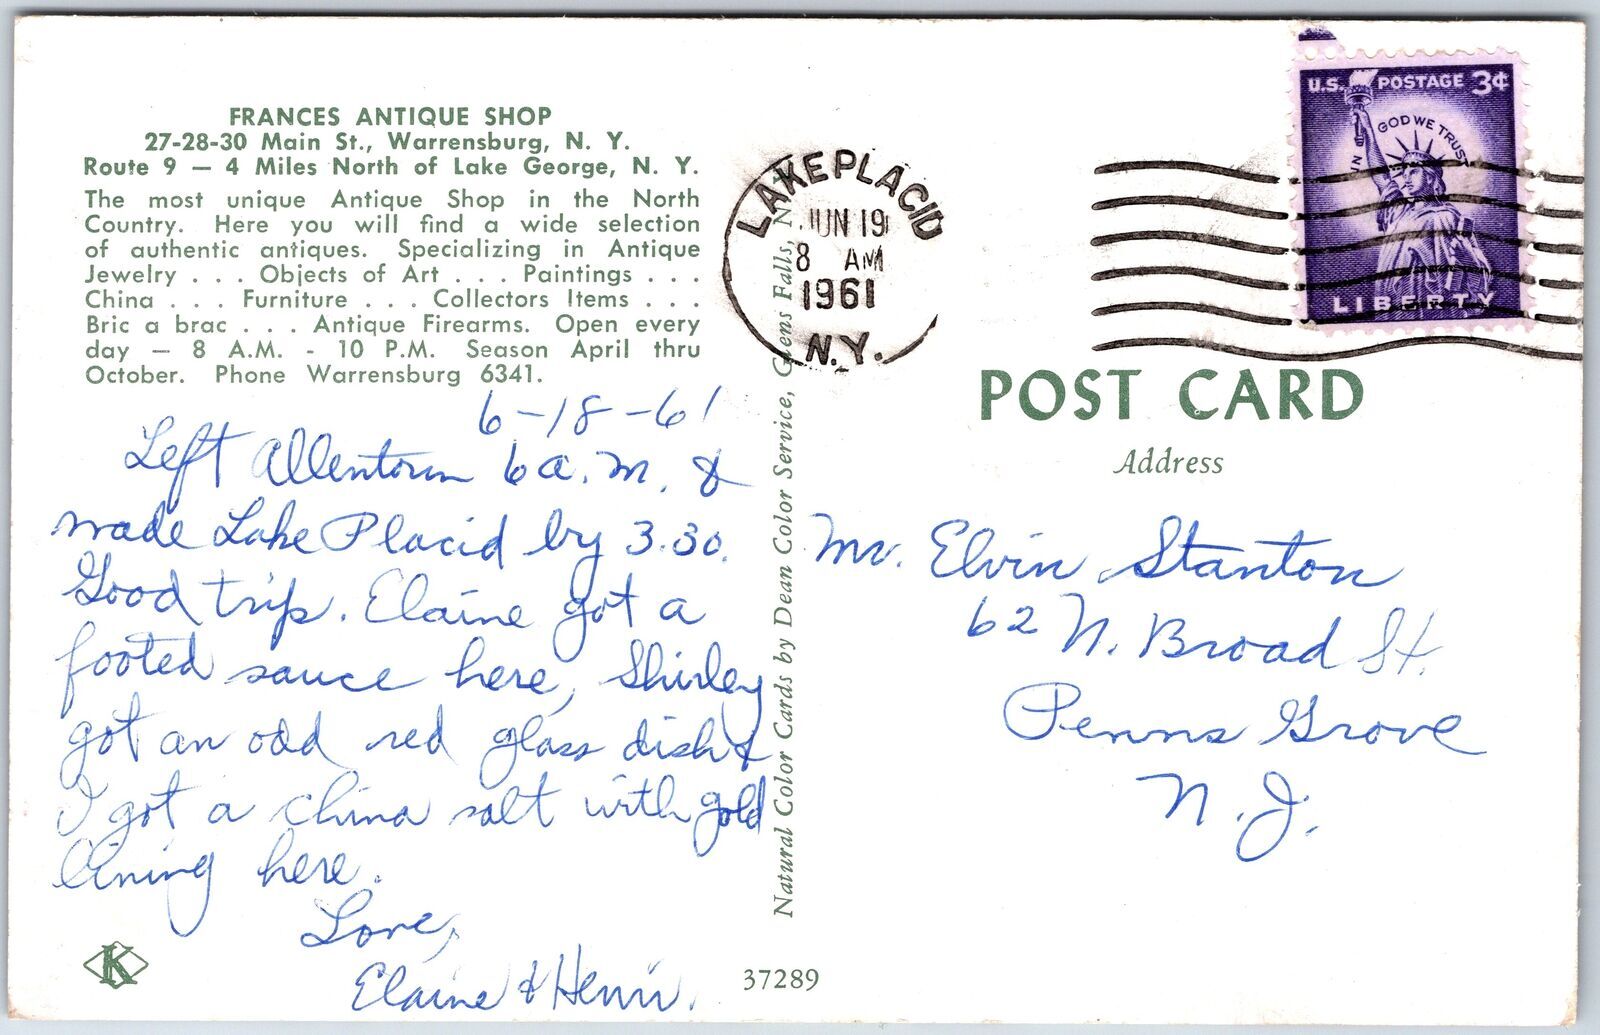 FRANCES ANTIQUE SHOP
27-28-30 Main St., Warrensburg, N. Y.
Route 9 — 4 Miles North of Lake George, N. Y.
The most unique Antique Shop in the North
Country. Here you will find a wide selection
of authentic antiques. Specializing in Antique
Jewelry . . . Objects of Art . . . Paintings . . .
China . . . Furniture . . . Collectors Items . . .
Bric a brac . . . Antique Firearms. Open every
day — 8 A.M. - 10 P.M. Season April thru
October. Phone Warrensburg 6341.
6-18-61
Left Allentown 6 a.m. &
made Lake Placid by 3.30.
Good trip. Elaine got a
footed sauce here, Shirley
got an odd red glass dish &
I got a china salt with gold
lining here.
Love,
Elaine & Henri.
K
37289
Natural Color Cards by Dean Color Service, Glens Falls, N.
LAKE PLACID
JUN 19
8 AM
1961
N.Y.
U.S. POSTAGE 3¢
IN GOD WE TRUST
LIBERTY
POST CARD
Address
Mr. Elvin Stanton
62 N. Broad St.
Penns Grove
N. J.